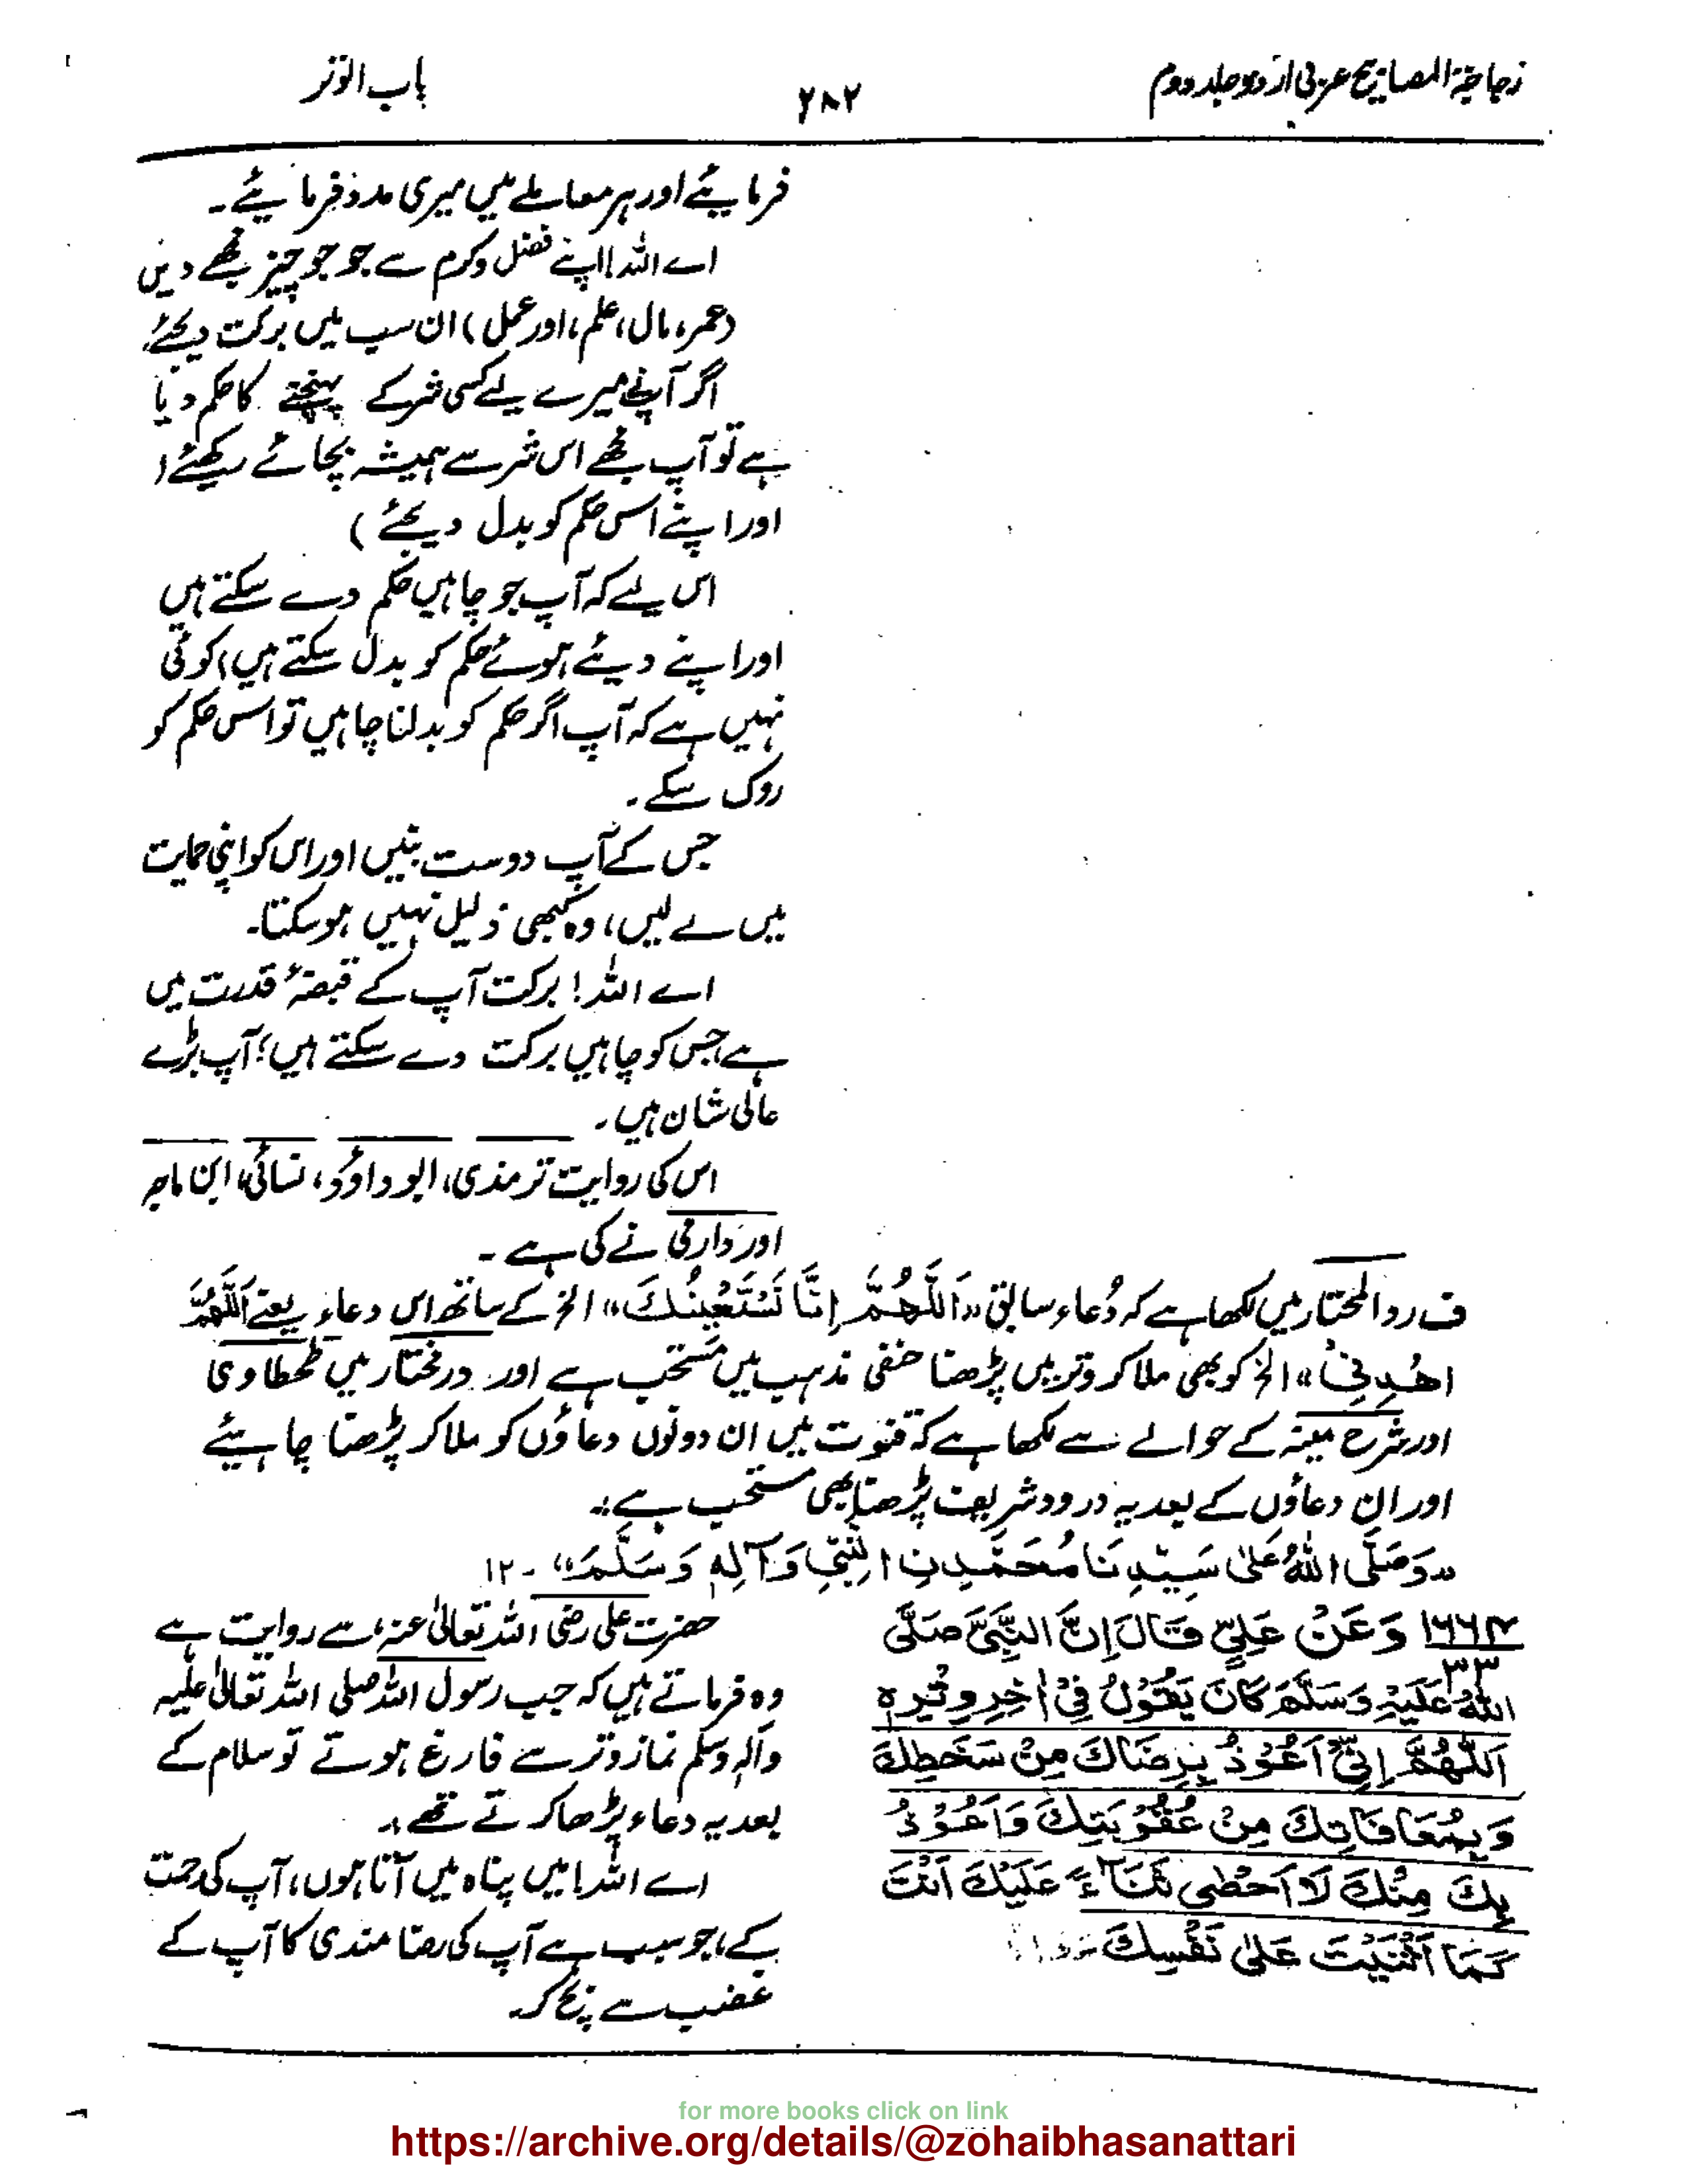 زجاجۃ المصابیح عربی اردو جلد دوم
۲۸۲
باب الوتر
فرمایئے اور ہر معاملے میں میری مدد فرمایئے۔
اے اللہ! اپنے فضل وکرم سے جو جو چیز مجھے دیں
(عمر، مال، علم، اور عمل) ان سب میں برکت دیجئے،
اگر آپ نے میرے لیے کسی شر کے پہنچنے کا حکم دیا
ہے تو آپ مجھے اس شر سے ہمیشہ بچائے رکھئے (
اور اپنے اس حکم کو بدل دیجئے)
اس لیے کہ آپ جو چاہیں حکم دے سکتے ہیں
اور اپنے دیئے ہوئے حکم کو بدل سکتے ہیں، کوئی
نہیں ہے کہ آپ اگر حکم کو بدلنا چاہیں تو اس حکم کو
روک سکے۔
جس کے آپ دوست بنیں اور اس کو اپنی حمایت
میں لے لیں، وہ کبھی ذلیل نہیں ہو سکتا۔
اے اللہ! برکت آپ کے قبضۂ قدرت میں
ہے، جس کو چاہیں برکت دے سکتے ہیں؛ آپ بڑے
عالی شان ہیں۔
اس کی روایت ترمذی، ابو داؤد، نسائی، ابن ماجہ
اور دارمی نے کی ہے۔
ف رد المحتار میں لکھا ہے کہ دُعاء سابق «اَللّٰهُمَّ اِنَّا نَسْتَعِيْنُكَ» الخ کے ساتھ اس دعاء یعنے اَللّٰهُمَّ
اهْدِنِيْ» الخ کو بھی ملا کر وتر میں پڑھنا حنفی مذہب میں مستحب ہے اور درمختار میں طحطاوی
اور شرح مینہ کے حوالے سے لکھا ہے کہ قنوت میں ان دونوں دعاؤں کو ملا کر پڑھنا چاہیئے
اور ان دعاؤں کے بعد یہ درود شریف پڑھنا بھی مستحب ہے:۔
«وَصَلَّى اللّٰهُ عَلٰى سَيِّدِنَا مُحَمَّدِنِ النَّبِيِّ وَآلِهٖ وَسَلَّمَ»۔ ۱۲
۱۶۶۲ وَعَنْ عَلِيٍّ قَالَ اِنَّ النَّبِيَّ صَلَّى
۳۳
اللّٰهُ عَلَيْهِ وَسَلَّمَ كَانَ يَقُوْلُ فِيْ اٰخِرِ وِتْرِهٖ
اَللّٰهُمَّ اِنِّيْ اَعُوْذُ بِرِضَاكَ مِنْ سَخَطِكَ
وَبِمُعَافَاتِكَ مِنْ عُقُوْبَتِكَ وَاَعُوْذُ
بِكَ مِنْكَ لَا اُحْصِيْ ثَنَاءً عَلَيْكَ اَنْتَ
كَمَا اَثْنَيْتَ عَلٰى نَفْسِكَ
حضرت علی رضی اللہ تعالیٰ عنہ، سے روایت ہے
وہ فرماتے ہیں کہ جب رسول اللہ صلی اللہ تعالیٰ علیہ
وآلہ وسلم نماز وتر سے فارغ ہوتے تو سلام کے
بعد یہ دعاء پڑھا کرتے تھے:۔
اے اللہ! میں پناہ میں آتا ہوں، آپ کی رحمت
کے، جو سبب ہے آپ کی رضا مندی کا آپ کے
غضب سے بچ کر۔
for more books click on link
https://archive.org/details/@zohaibhasanattari